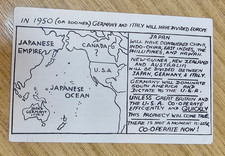 IN 1950 (OR SOONER) GERMANY AND ITALY WILL HAVE DIVIDED EUROPE
JAPANESE
EMPIRE
CANADA
U.S.A.
JAPANESE
OCEAN
JAPAN
WILL HAVE CONQUERED CHINA,
INDO-CHINA, EAST INDIES, THE
PHILLIPINES, AND HAWAII
NEW GUINEA, NEW ZEALAND
AND AUSTRALIA WILL
BE DIVIDED BETWEEN
JAPAN, GERMANY & ITALY.
GERMANY WILL DOMINATE
SOUTH AMERICA AND
DICTATE TO THE U.S.A.
UNLESS GREAT BRITAIN AND
THE U.S.A. CO-OPERATE
EFFICIENTLY AND QUICKLY
THIS PROPHECY WILL COME TRUE.
THERE IS NOT A MOMENT TO LOSE
CO-OPERATE NOW!